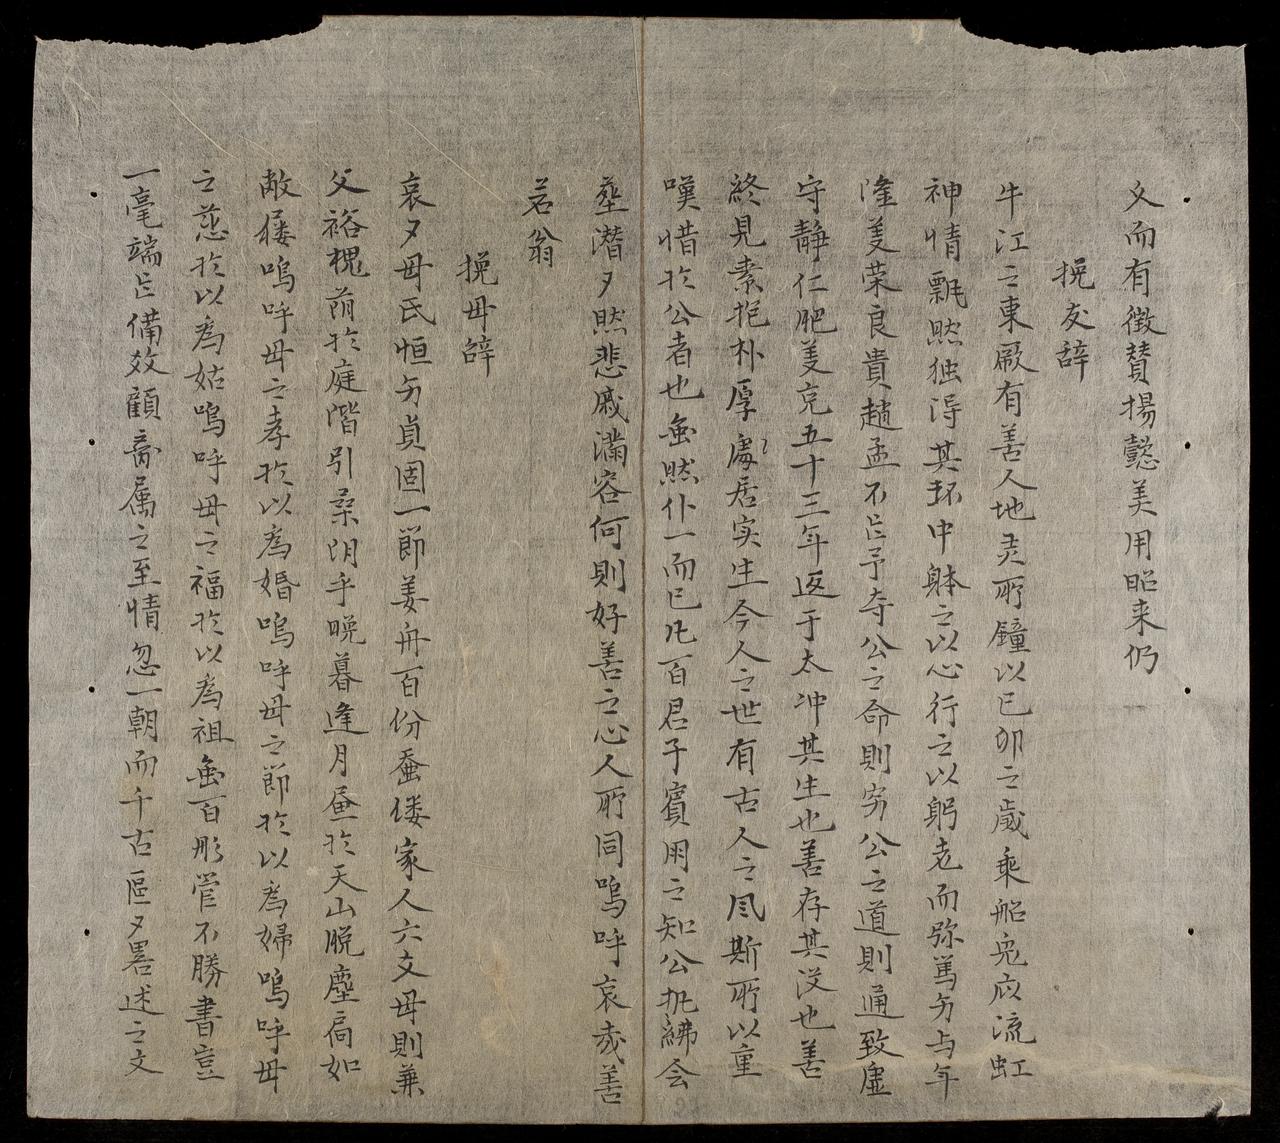 文而有徵賛揚懿美用昭来仍
挽友辞
牛江之東厥有善人地灵所鐘以已卯之歲乘船兎应流虹
神情飄然独淂其环中躰之以心行之以躬老而弥篤另与年
隆羙荣良貴趙孟不㠯予夺公之命則穷公之道則通致虚
守静仁肥羙克五十三年返于太冲其生也善存其没也善
終見素抱朴厚處居实生今人之世有古人之风斯所以重
嘆惜於公者也兪然仆一而已凡百君子賓用之知公扎紼会
塟潜夕然悲戚滿容何則好善之心人所同嗚呼哀哉善
若翁
挽毋辞
哀夕毋氏恒另貞固一節姜舟百份蚕偻家人六文毋則兼
父裕槐荫扵庭階引桒阴乎晚暮逢月昼扵天山脱塵局如
敝屣嗚呼毋之孝扵以為婚嗚呼毋之節扵以為婦嗚呼毋
之慈扵以為姑嗚呼毋之福扵以為祖兪百彤管不勝書豈
一毫端㠯備效顧斎属之至情忽一朝而千古區夕畧述之文